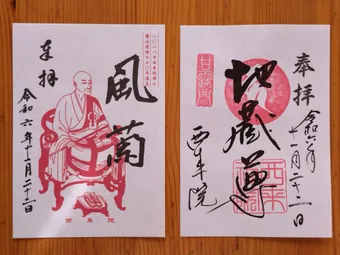 奉拝
風蘭
令和六年十一月二十二日
西来院
奉拝
甘露門
地蔵尊
令和六年
十一月二十二日
西来院
西来院